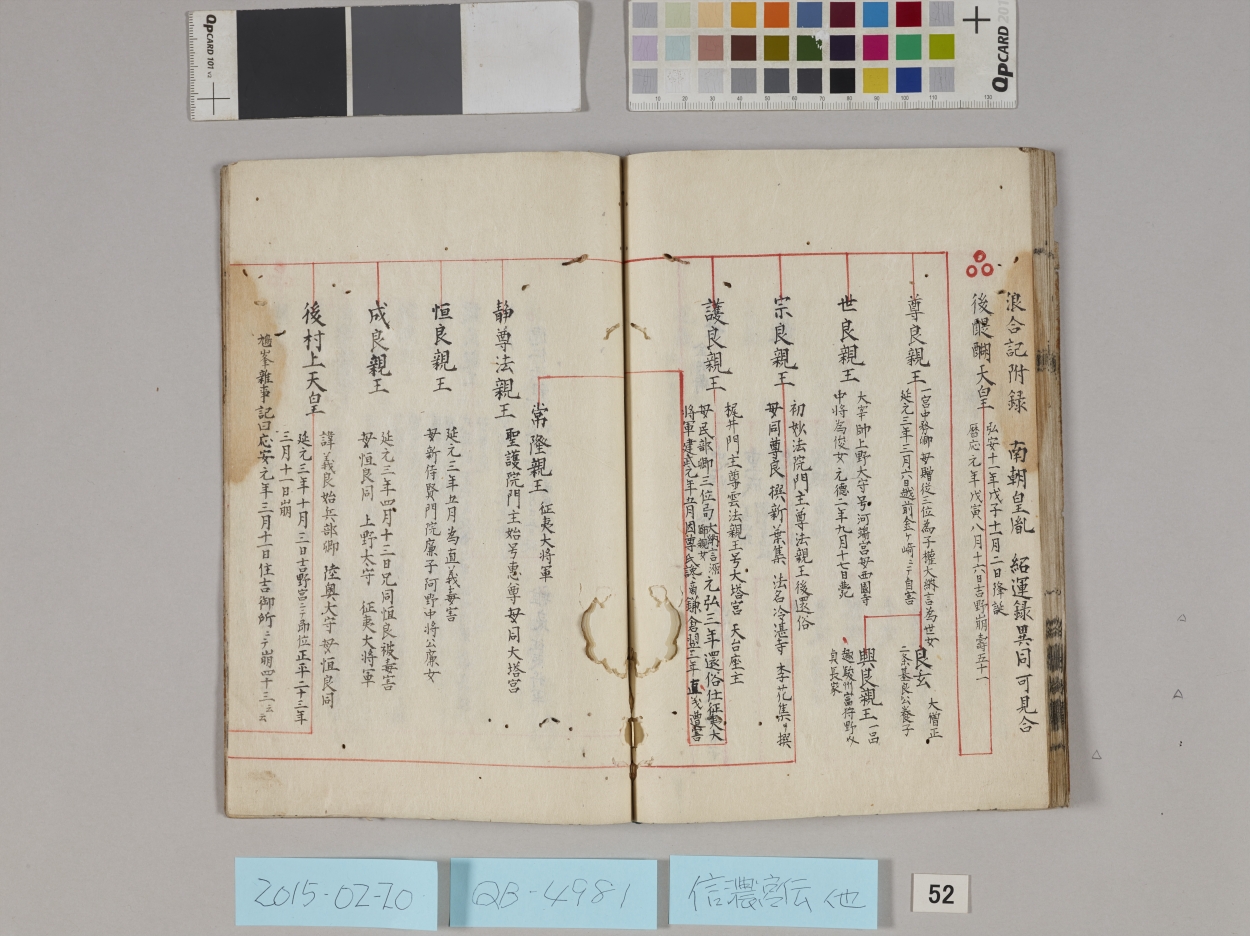 浪合記附録　南朝皇胤　紹運録異同可見合
後醍醐天皇
弘安十一年戊子十一月二日降誕
暦応元年戊寅八月十六日吉野崩壽五十一
尊良親王
一宮中務卿母贈従三位為子權大納言為世女
延元三年三月六日越前金ヶ崎ニテ自害
良玄
大僧正
二条基良公養子
興良親王
一品
世良親王
太宰帥上野太守号河端宮母西園寺
中将為俊女元徳二年九月十七日薨
宗良親王
初妙法院門主尊法親王後還俗
母同尊良撰新葉集　法名冷湛寺　李花集ヲ撰
護良親王
梶井門主尊雲法親王号大塔宮　天台座主
母民部卿三位局
大納言源師親女
元弘三年還俗仕征夷大
将軍建武元年五月因
常隆親王
征夷大将軍
静尊法親王
聖護院門主始号惠尊母同大塔宮
恒良親王
延元三年五月為直義毒害
母新待賢門院廉子阿野中将公廉女
成良親王
延元三年四月十三日兄同恒良被毒害
母恒良同　上野太守　征夷大将軍
後村上天皇
諱義良始兵部卿　陸奥太守　母恒良同
延元三年十月三日吉野宮ニテ即位正平二十三年
三月十一日崩
雜事記曰応安元年三月十一日住吉御所ニテ崩四十三云云
QPCARD 101 v3
QPCARD 201
2015-02-20
QB-4981
信濃宮伝 他
52